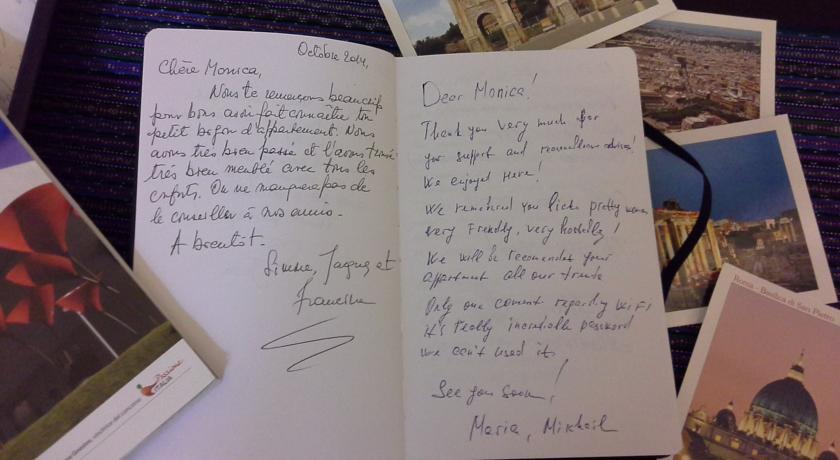 Octobre 2014,
Chère Monica,
Nous te remercions beaucoup
pour nous avoir fait connaître ton
petit bijou d'appartement. Nous
avons très bien passé et l'avons trouvé
très bien meublé avec tous les
conforts. On ne manquera pas de
le conseiller à nos amis.
A bientôt.
Simone, Jacques et
Francine
Dear Monica!
Thank you very much for
your support and
We enjoyed Here!
We remembered you like pretty woman
very Friendly, very
We will be recomendet your
appartment all our
Only one coment regarding WiFi
it's really incredible password
we can't used it
See you soon!
Maria, Mikhail
ITALIA
Roma - Basilica di San Pietro